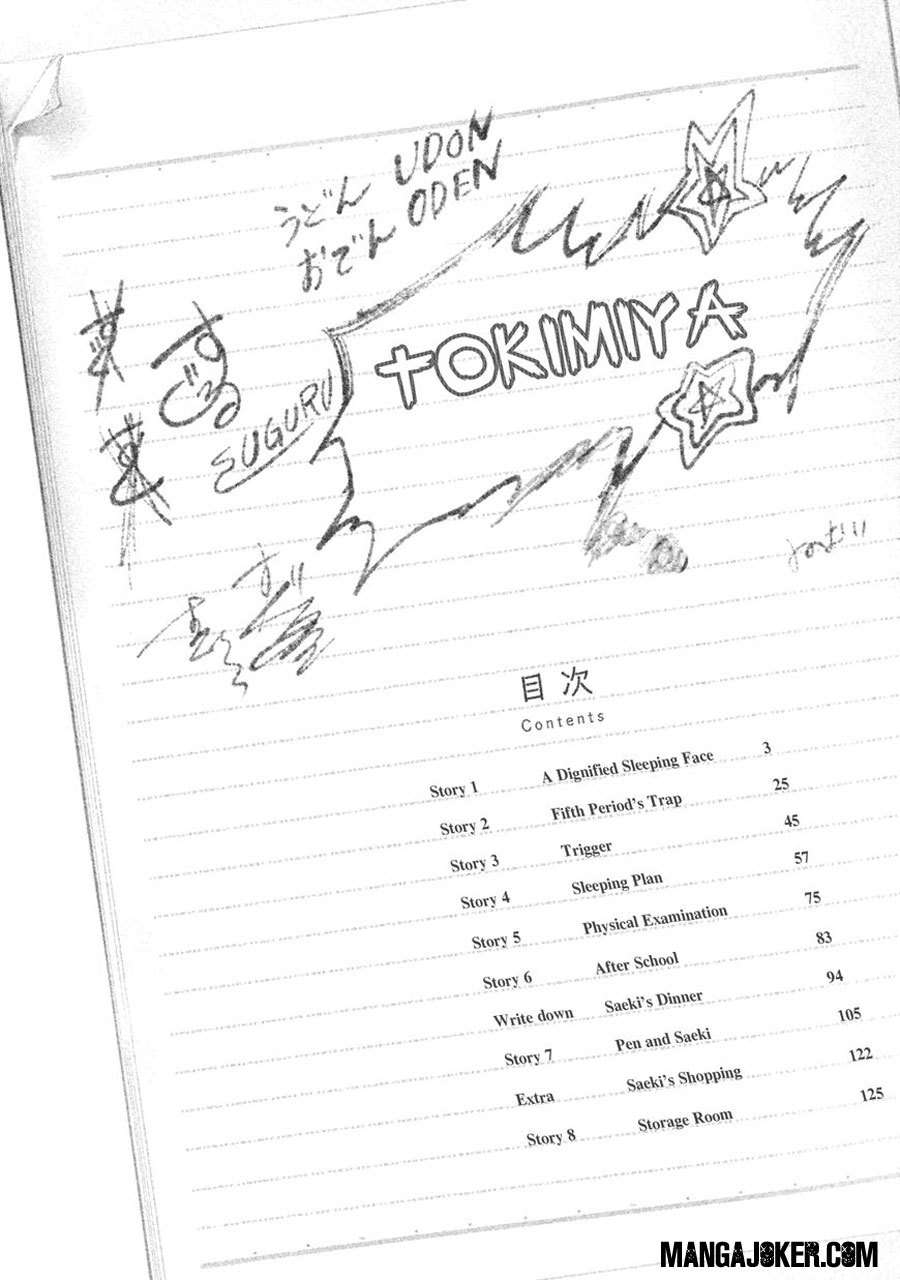 うどん UDON
おでん ODEN
TOKIMIYA
すぐる
SUGURU
目次
Contents
Story 1 A Dignified Sleeping Face 3
Story 2 Fifth Period's Trap 25
Story 3 Trigger 45
Story 4 Sleeping Plan 57
Story 5 Physical Examination 75
Story 6 After School 83
Write down Saeki's Dinner 94
Story 7 Pen and Saeki 105
Extra Saeki's Shopping 122
Story 8 Storage Room 125
MANGAJOKER.COM